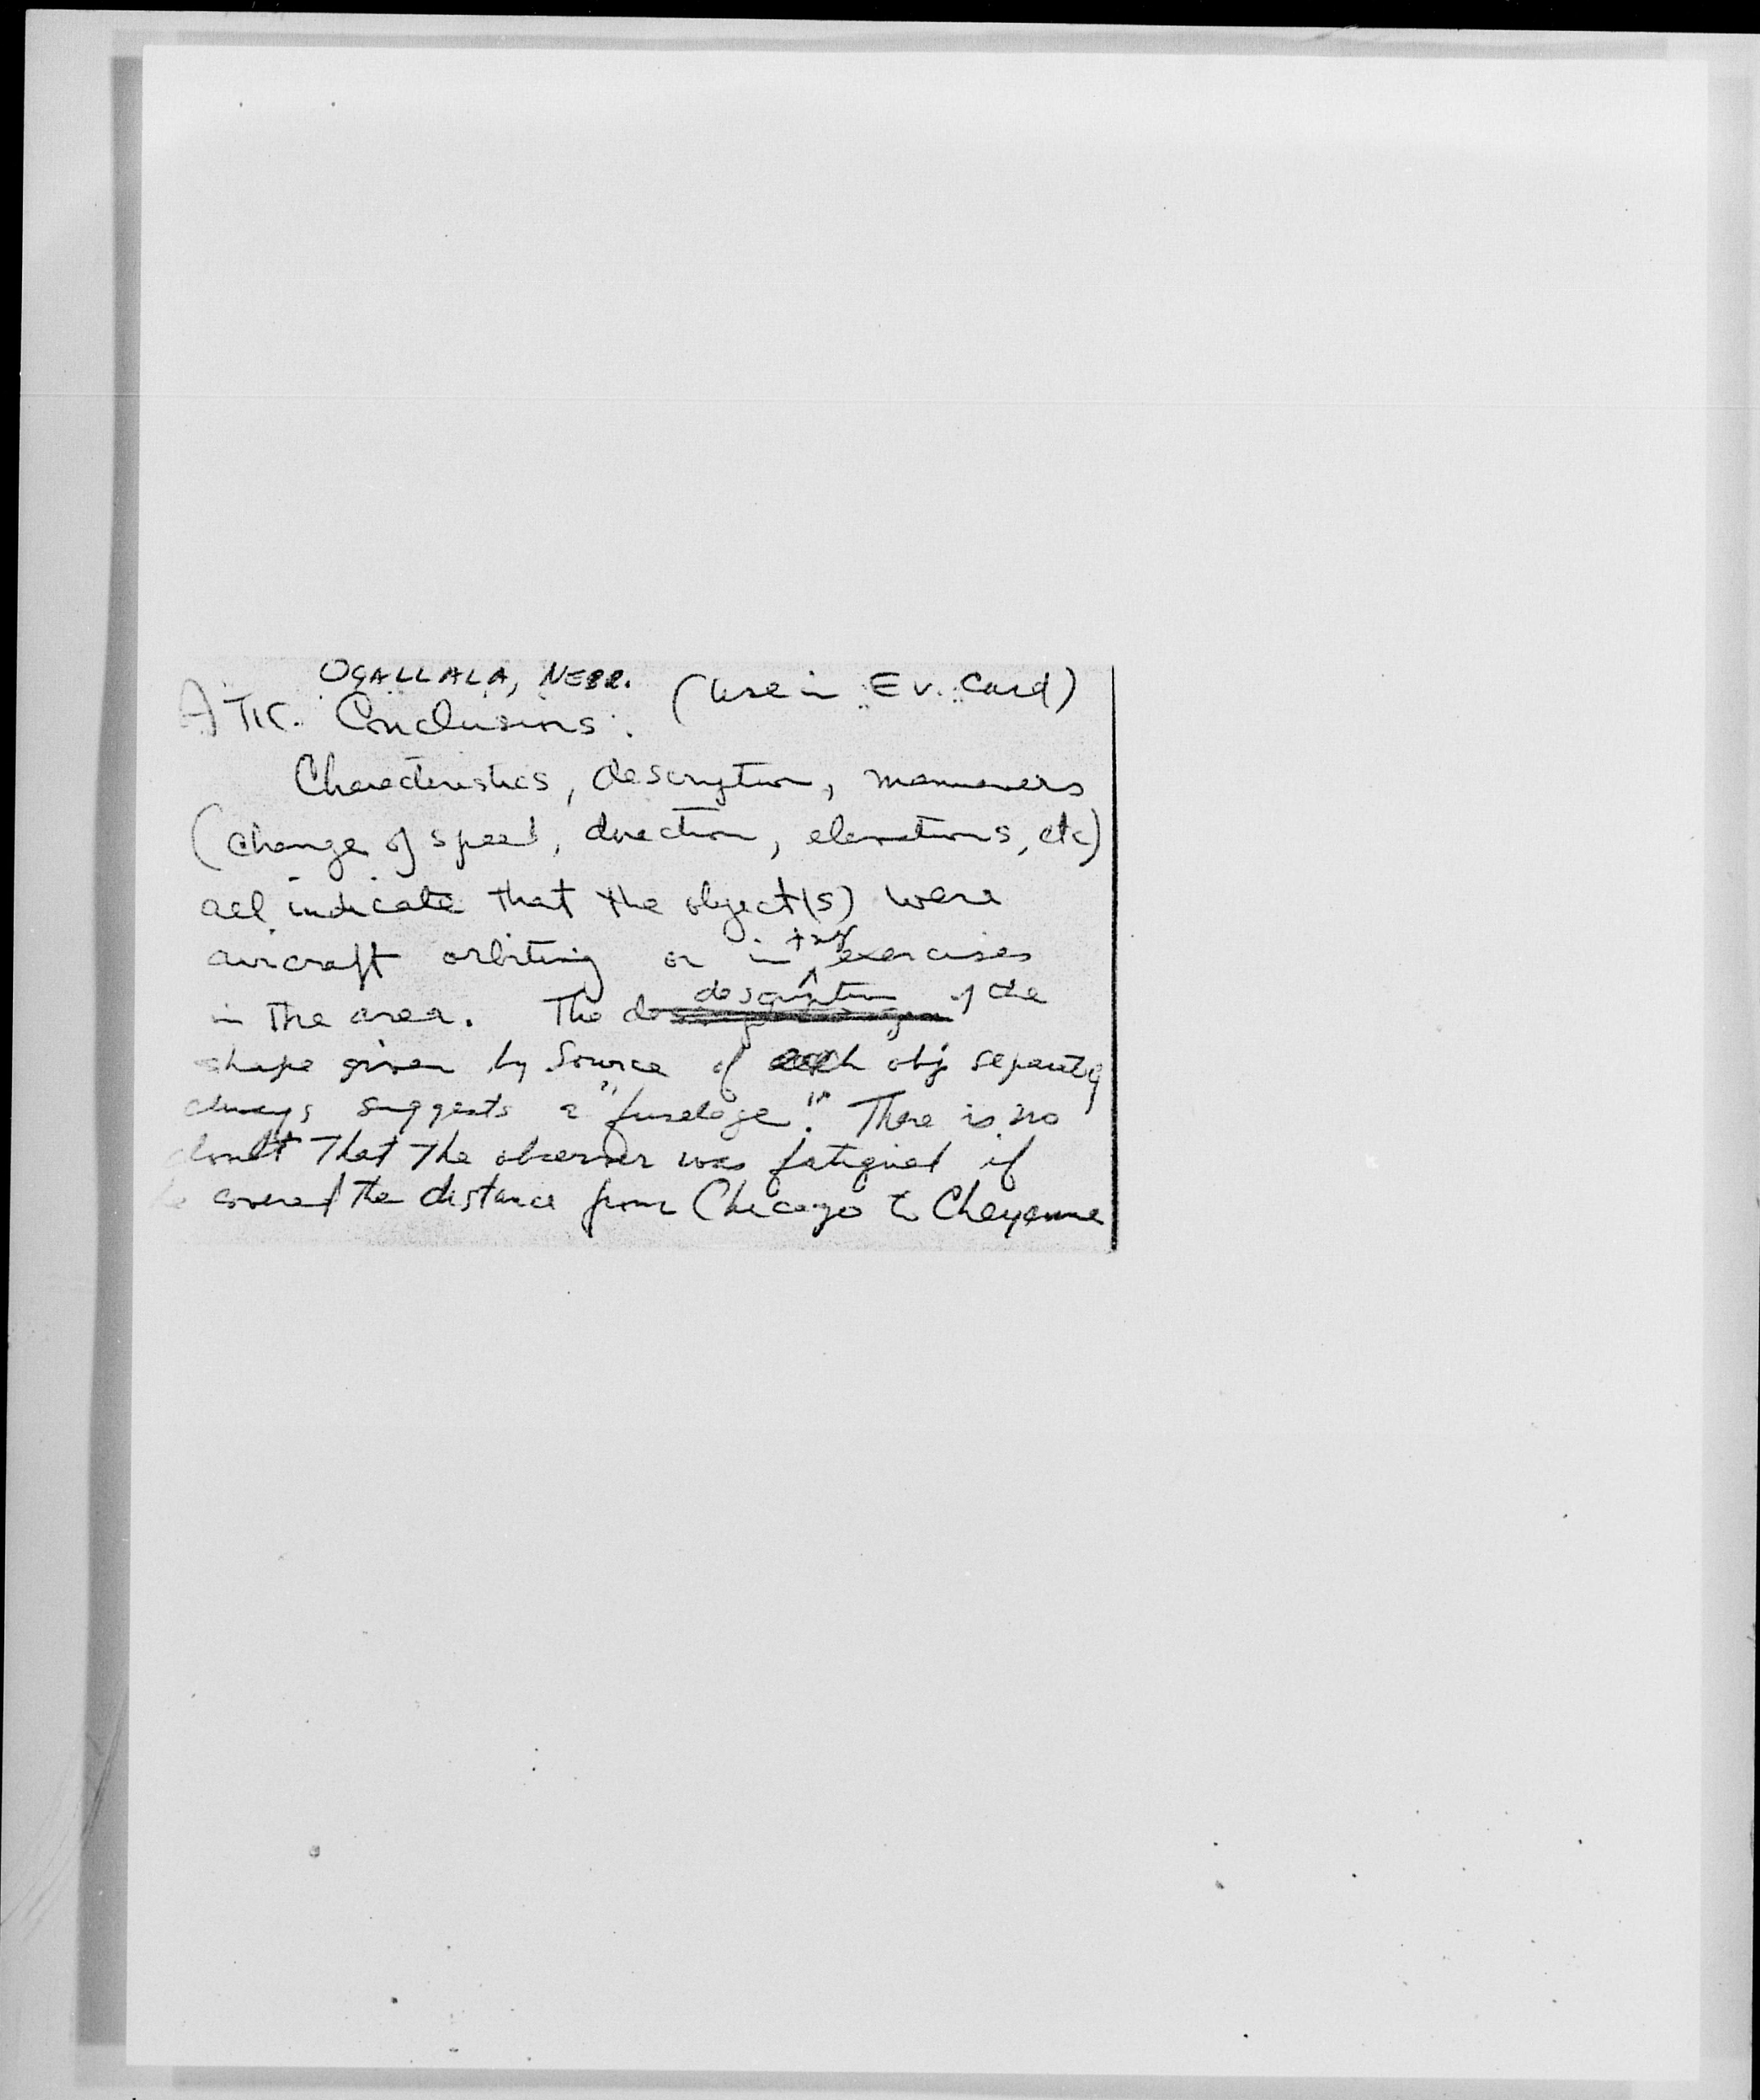 OGALLALA, NEBR. (Use in Ev. Card)
ATIC. Conclusions:
Characteristics, description, maneuvers
(change of speed, direction, elevations, etc)
all indicate that the object(s) were
aircraft orbiting or in trng exercises
in the area. The description of the
shape given by Source of each obj separately
always suggests a "fuselage". There is no
doubt that the observer was fatigued if
he covered the distance from Chicago to Cheyenne